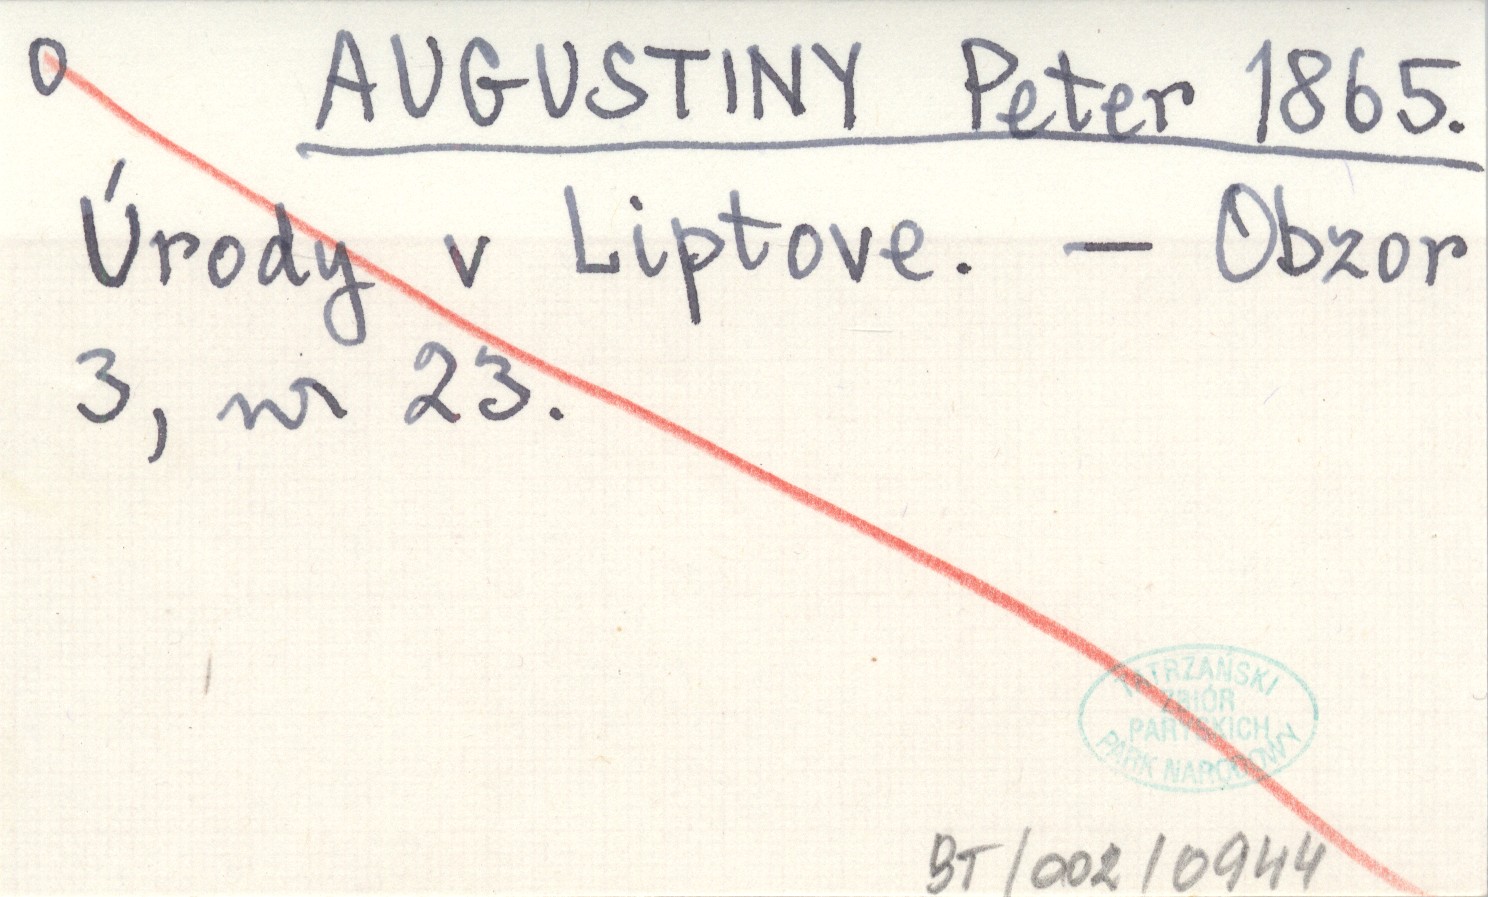 O AUGUSTINY Peter 1865.
Úrody v Liptove. — Obzor
3, nr 23.
TATRZAŃSKI
ZBIÓR
PARYSKICH
PARK NARODOWY
BT/002/0944